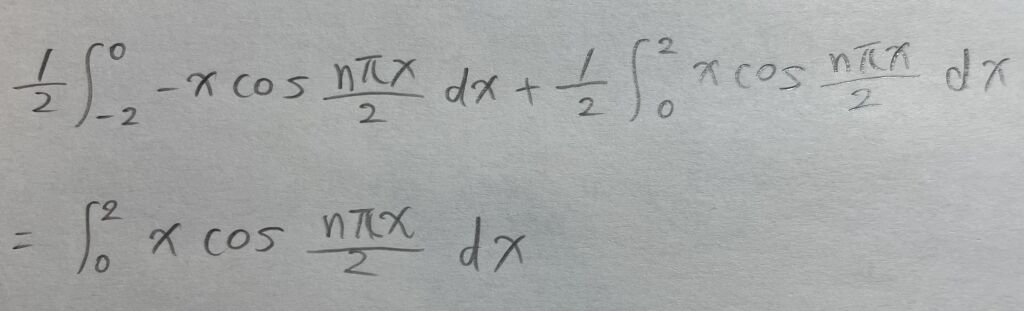 1/2 ∫_{-2}^{0} -x cos nπx/2 dx + 1/2 ∫_{0}^{2} x cos nπx/2 dx
= ∫_{0}^{2} x cos nπx/2 dx